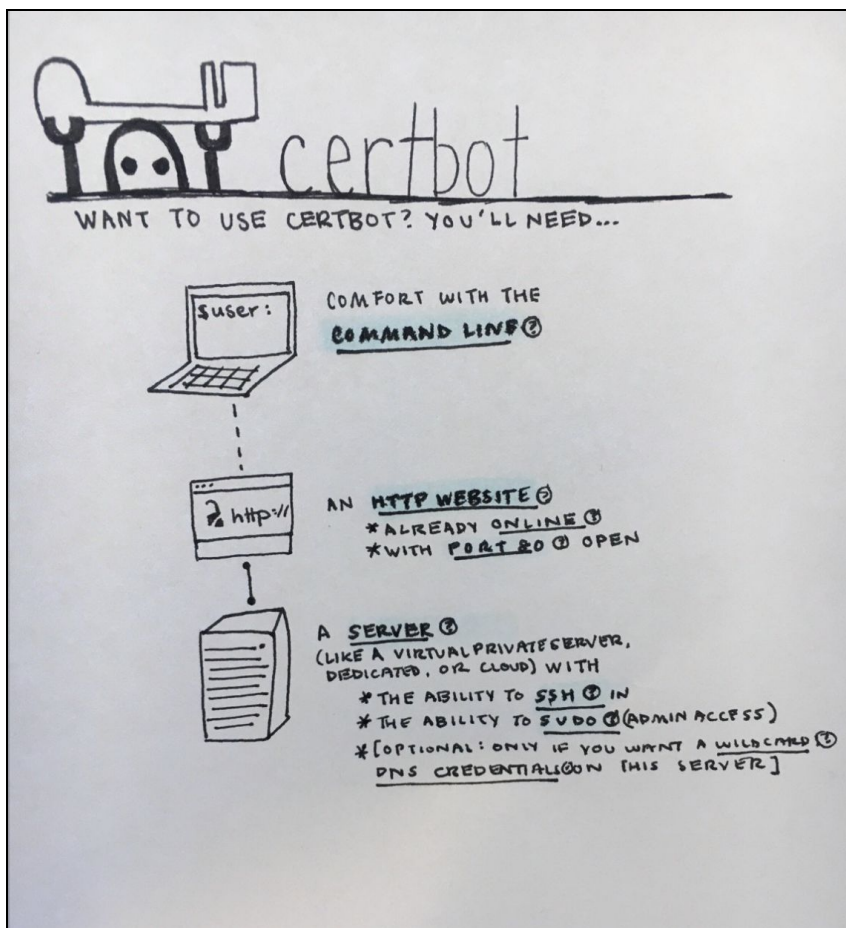 certbot
WANT TO USE CERTBOT? YOU'LL NEED...
$user:
COMFORT WITH THE
COMMAND LINE ?
http://
AN HTTP WEBSITE ?
*ALREADY ONLINE ?
*WITH PORT 80 ? OPEN
A SERVER ?
(LIKE A VIRTUAL PRIVATE SERVER,
DEDICATED, OR CLOUD) WITH
*THE ABILITY TO SSH ? IN
*THE ABILITY TO SUDO ? (ADMIN ACCESS)
*[OPTIONAL: ONLY IF YOU WANT A WILDCARD ?
DNS CREDENTIALS ? ON THIS SERVER]